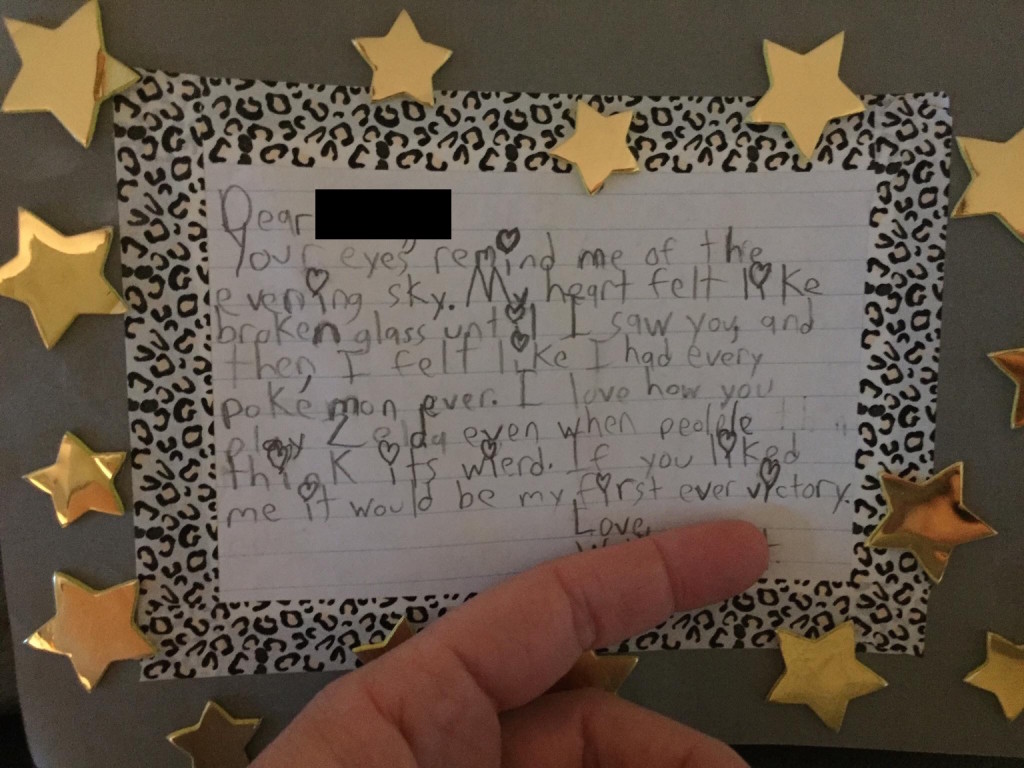 Dear
Your eyes remind me of the
evening sky. My heart felt like
broken glass until I saw you, and
then, I felt like I had every
pokémon ever. I love how you
play Zelda even when people
think its wierd. If you liked
me it would be my first ever victory.
Love,